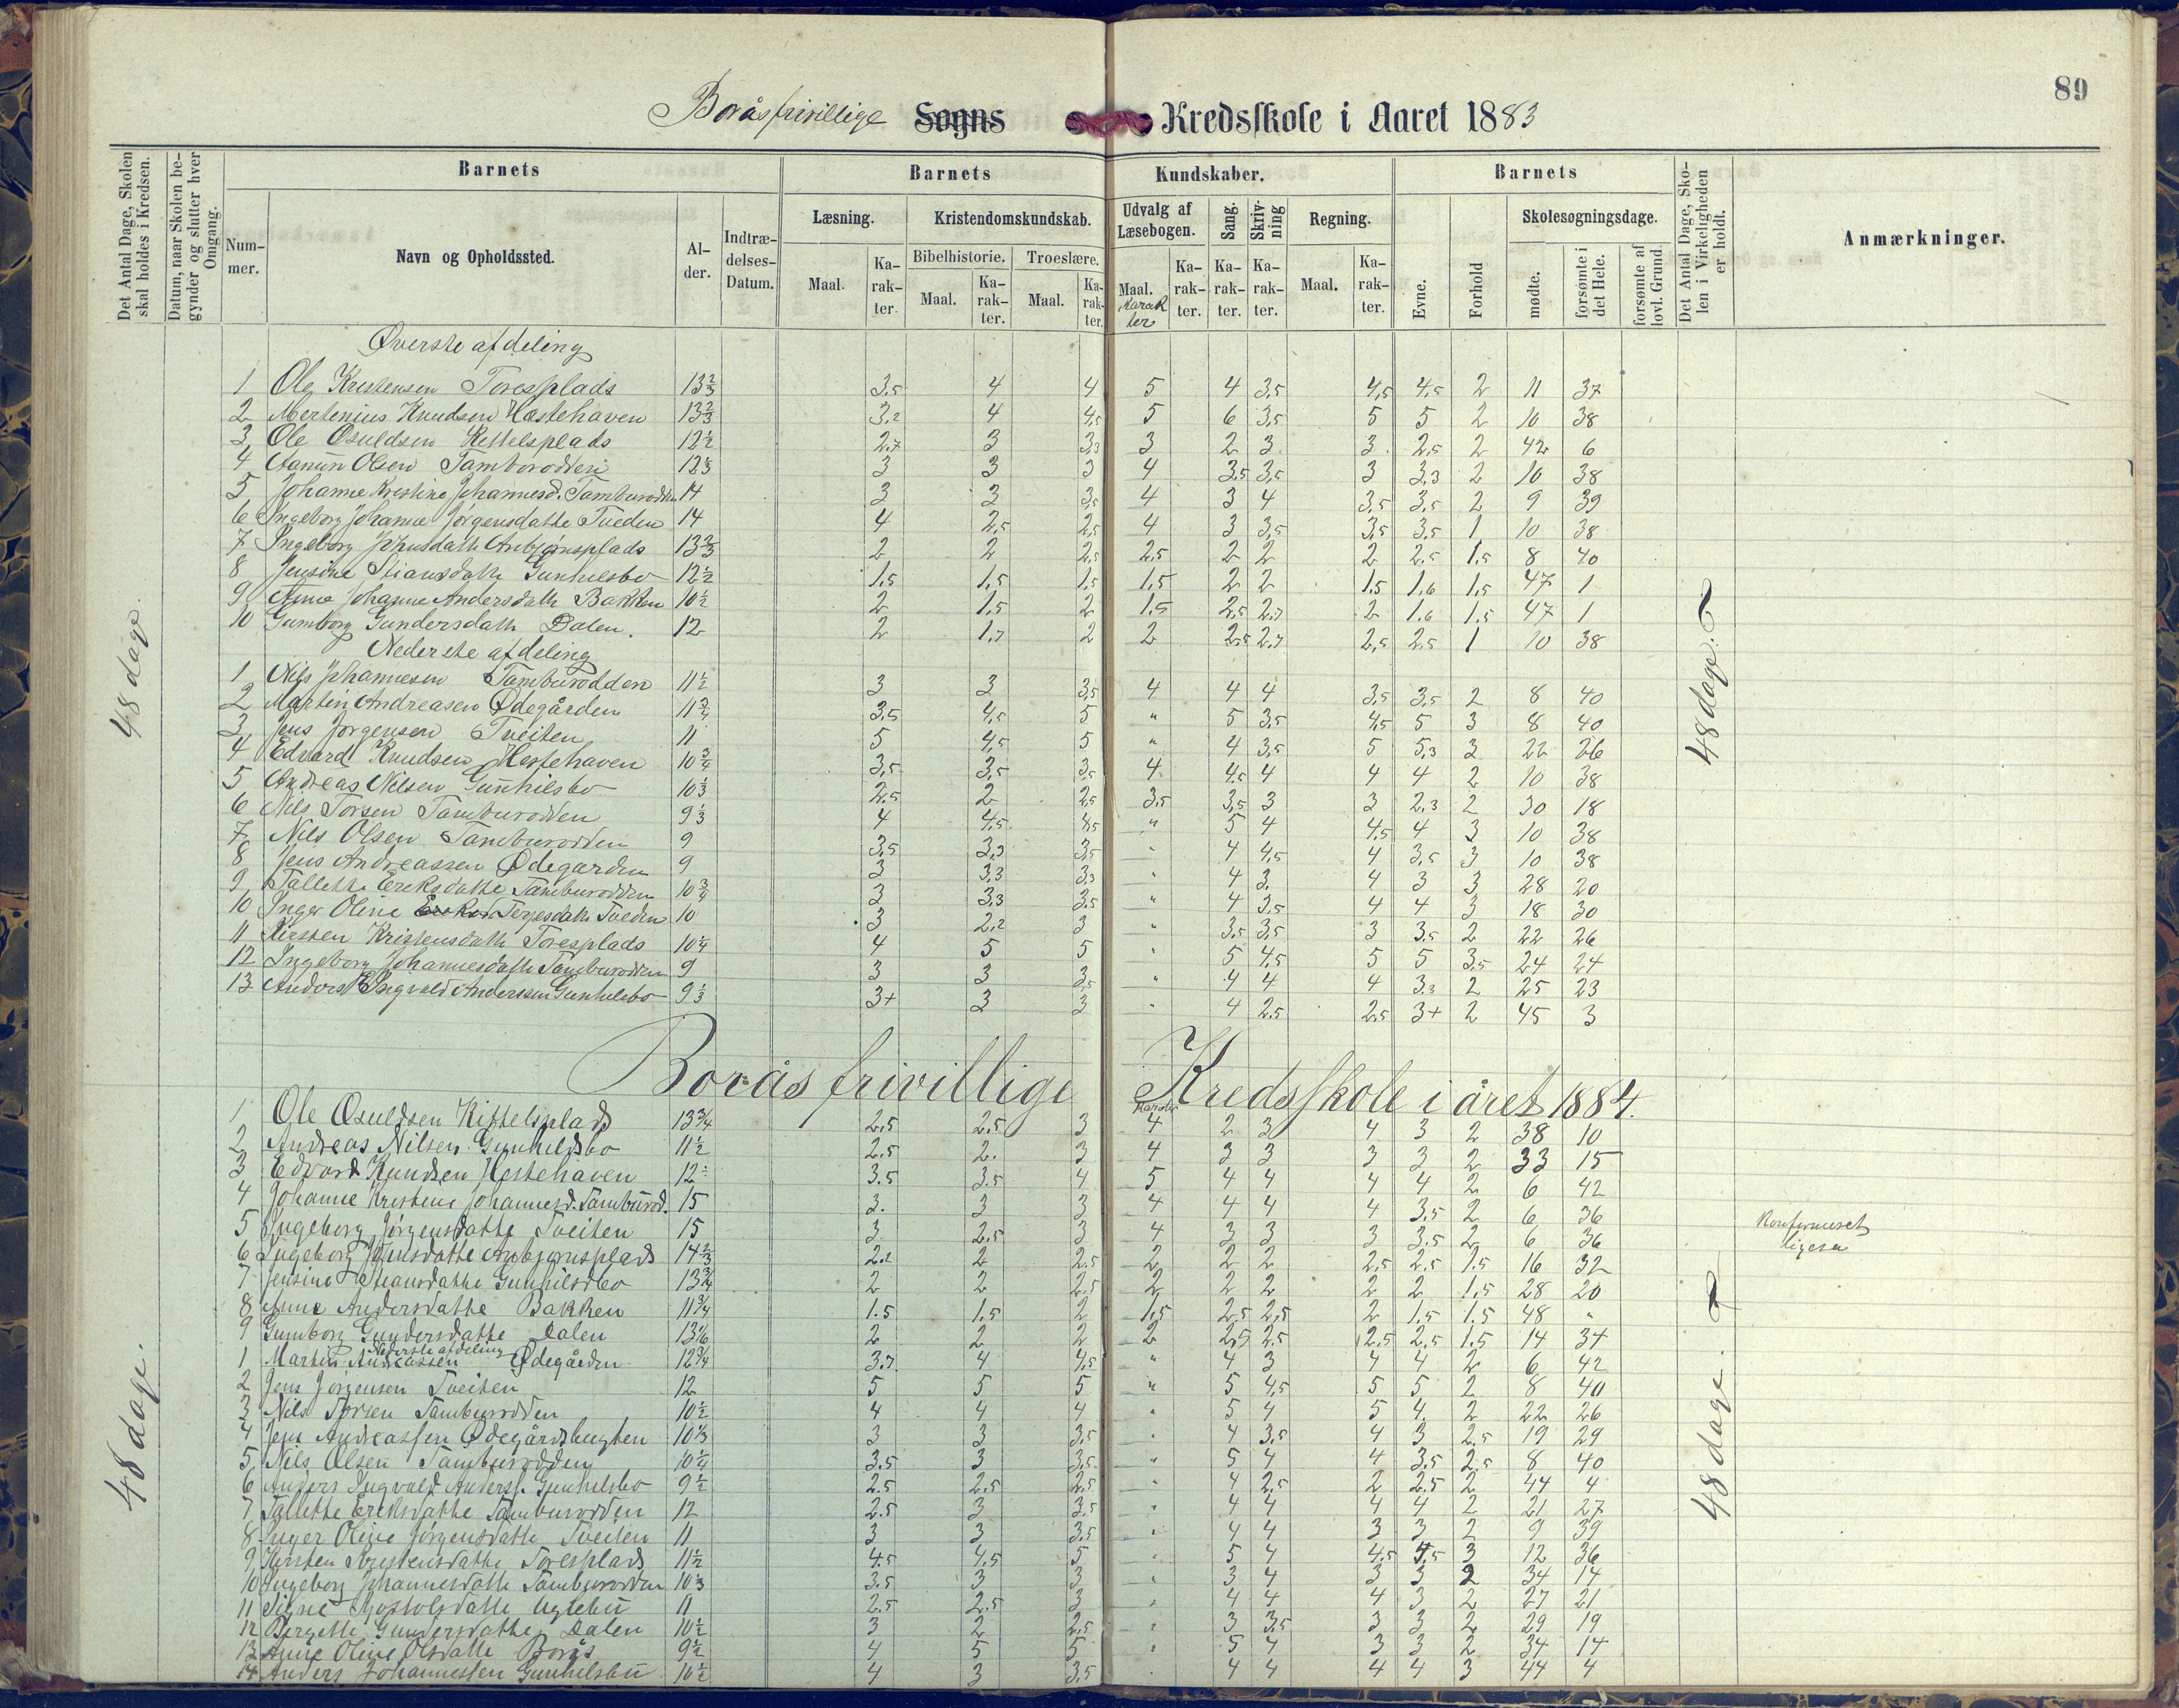 89
Boråsfrivillige Sogns Kredsskole i Aaret 1883
Det Antal Dage, Skolen skal holdes i Kredsen.
Datum, naar Skolen begynder og slutter hver Omgang.
Barnets Barnets Kundskaber. Barnets
Det Antal Dage, Skolen i Virkeligheden er holdt.
Anmærkninger.
Nummer. Navn og Opholdssted. Alder. Indtrædelses-Datum.
Læsning. Kristendomskundskab. Udvalg af Læsebogen. Sang. Skrivning Regning. Evne. Forhold Skolesøgningsdage.
Bibelhistorie. Troeslære.
Maal. Karakter. Maal. Karakter. Maal. Karakter. Maal. Karakter Karakter. Karakter. Karakter. Maal. Karakter. mødte. forsømte i det Hele. forsømte af lovl. Grund.
Øverste afdeling
1 Ole Kristensen Toresplads 13 2/3 3,5 4 4 5 4 3,5 4,5 4,5 2 11 37
2 Mertenius Knudsen Hæstehaven 13 2/3 3,2 4 4,5 5 6 3,5 5 5 2 10 38
3 Ole Osuldsen Kittelsplads 12 1/2 2,7 3 3,3 3 2 3 3 2,5 2 42 6
4 Aanun Olsen Tamburodden 12 1/3 3 3 3 4 3,5 3,5 3 3,3 2 10 38
5 Johanne Kristine Johannesd. Tamburodden 14 3 3 3,5 4 3 4 3,5 3,5 2 9 39
6 Ingeborg Johanne Jørgensdatte Tveden 14 4 2,5 2,5 4 3 3,5 3,5 3,5 1 10 38
7 Ingeborg Jensdatte Anbjørnsplads 13 2/3 2 2 2,5 2,5 2 2 2 2,5 1,5 8 40
8 Jensine Stiansdatte Gunhilsbo 12 1/2 1,5 1,5 1,5 1,5 2 2 1,5 1,6 1,5 47 1
9 Anne Johanne Andersdatte Bakken 10 1/2 2 1,5 2 1,5 2,5 2,7 2 1,6 1,5 47 1
10 Gunborg Gundersdatte Dalen. 12 2 1,7 2 2 2,5 2,7 2,5 2,5 1 10 38
Nederste afdeling
1 Nils Johannesen Tamburodden 11 1/2 3 3 3,5 4 4 4 3,5 3,5 2 8 40
2 Martin Andreasen Ødegården 11 3/4 3,5 4,5 5 " 5 3,5 4,5 5 3 8 40
3 Jens Jørgensen Tveiten 11 5 4,5 5 " 4 3,5 5 5,3 3 22 26
4 Edvard Knudsen Hestehaven 10 3/4 3,5 3,5 3,5 4 4,5 4 4 4 2 10 38
5 Andreas Nilsen Gunhilsbo 10 1/3 2,5 2 2,5 3,5 3,5 3 3 2,3 2 30 18
6 Nils Torsen Tamburodden 9 1/3 4 4,5 4,5 " 5 4 4,5 4 3 10 38
7 Nils Olsen Tamburodden 9 3,5 3,3 3,5 " 4 4,5 4 3,5 3 10 38
8 Jens Andreassen Ødegarden 9 3 3,3 3,3 " 4 3 4 3 3 28 20
9 Tallette Ereksdatte Tamburodden 10 3/4 3 3,3 3,5 " 4 3,5 4 4 3 18 30
10 Inger Oline Terjesdatte Tveden 10 3 2,2 3 " 3,5 3,5 3 3,5 2 22 26
11 Kirsten Kristensdatte Toresplads 10 1/4 4 5 5 " 5 4,5 5 5 3,5 24 24
12 Ingeborg Johannesdatte Tamburodden 9 3 3 3,5 " 4 4 4 3,3 2 25 23
13 Anders Ingvald Andersen Gunhilsbo 9 1/3 3+ 3 3 " 4 2,5 2,5 3+ 2 45 3
48 dage.
48 dage.
Borås frivillige Kredsskole i året 1884.
1 Ole Osuldsen Kittelsplads 13 3/4 2.5 2.5 3 4 2 3 4 3 2 38 10
2 Andreas Nilsen Gunhildsbo 11 1/2 2.5 2. 3 4 3 3 3 3 2 33 15
3 Edvard Knudsen Hestehaven 12 3.5 3.5 4 5 4 4 4 4 2 6 42
4 Johanne Kristene Johannesd. Tamburod. 15 3. 3 3 4 4 4 4 3,5 2 6 36 Konfirmeret
5 Ingeborg Jørgensdatte Tveiten 15 3 2.5 3 4 3 3 3 3.5 2 6 36 ligesa
6 Ingeborg Jensdatte Anbjørnsplads 14 2/3 2.2 2 2.5 2 2 2 2,5 2,5 1.5 16 32
7 Jensine Stiansdatte Gunhilsbo 13 3/4 2 2 2,5 2 2 2 2 2 1,5 28 20
8 Anne Andersdatte Bakken 11 3/4 1.5 1,5 2 1,5 2,5 2,5 2 1.5 1.5 48 "
9 Gunborg Gundersdatte Dalen 13 1/6 2 2 2 2 2,5 2.5 2,5 2,5 1.5 14 34
Nederste afdeling
1 Martin Andreassen Ødegården 12 3/4 3.7 4 4,5 " 4 3 4 4 2 6 42
2 Jens Jørgensen Tveiten 12 5 5 5 " 5 4,5 5 5 2 8 40
3 Nils Torsen Tamburodden 10 1/2 4 4 4 " 5 4 5 4 2 22 26
4 Jens Andreassen Ødegårdsbugten 10 1/3 3 3 3,5 " 4 3,5 4 3 2.5 19 29
5 Nils Olsen Tamburodden 10 1/4 3.5 3 3,5 " 5 4 4 3.5 2.5 8 40
6 Anders Ingvald Anderss. Gunhilsbo 9 1/2 2.5 2.5 2,5 " 4 2,5 2 2.5 2 44 4
7 Tallette Ereksdatte Tamburodden 12 2.5 3 3,5 " 4 4 4 4 2 21 27
8 Inger Oline Jørgensdatte Tveiten 11 3 3 3.5 " 4 4 3 3 2 9 39
9 Kirsten Kristensdatte Toresplads 11 1/2 4.5 4,5 5 " 5 4 4.5 4,5 3 12 36
10 Ingeborg Johannesdatte Tamburodden 10 1/3 3.5 3 3 " 3 4 3 3 2 34 14
11 Signe 11 2.5 2.5 3 " 4 4 4 3 2 27 21
12 Bergette Gundersdatte Dalen 10 1/2 3 2 2,5 " 3 3,5 3 3 2 29 19
13 Anne Oline Olsdatte Borås 9 1/2 4 5 5 " 5 4 3 3 2 34 14
14 Anders Johannessen Gunhilsbu 10 1/2 4 3 3,5 " 4 4 4 4 3 44 4
48 dage.
48 dage.